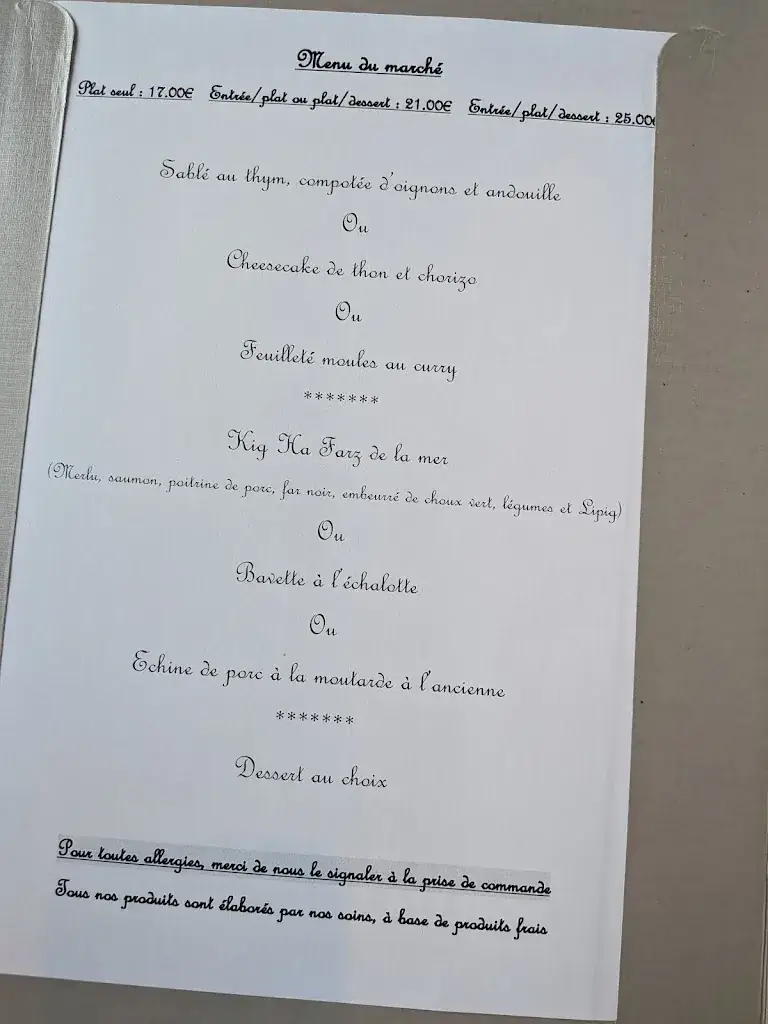 Menu du marché
Plat seul : 17.00€ Entrée/plat ou plat/dessert : 21.00€ Entrée/plat/dessert : 25.00€
Sablé au thym, compotée d'oignons et andouille
Ou
Cheesecake de thon et chorizo
Ou
Feuilleté moules au curry
*******
Kig Ha Farz de la mer
(Merlu, saumon, poitrine de porc, far noir, embeurré de choux vert, légumes et Lipig)
Ou
Bavette à l'échalotte
Ou
Echine de porc à la moutarde à l'ancienne
*******
Dessert au choix
Pour toutes allergies, merci de nous le signaler à la prise de commande
Tous nos produits sont élaborés par nos soins, à base de produits frais